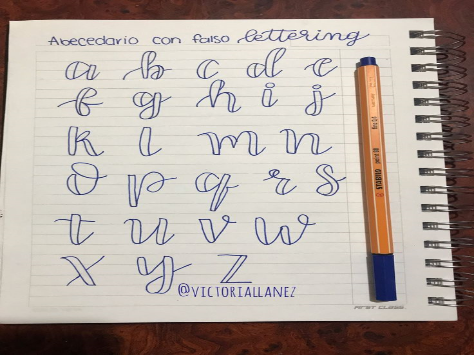 Abecedario con falso lettering
a b c d e
f g h i j
k l m n
o p q r s
t u v w
x y z
@VICTORIALLANEZ
STABILO
FIRST CLASS